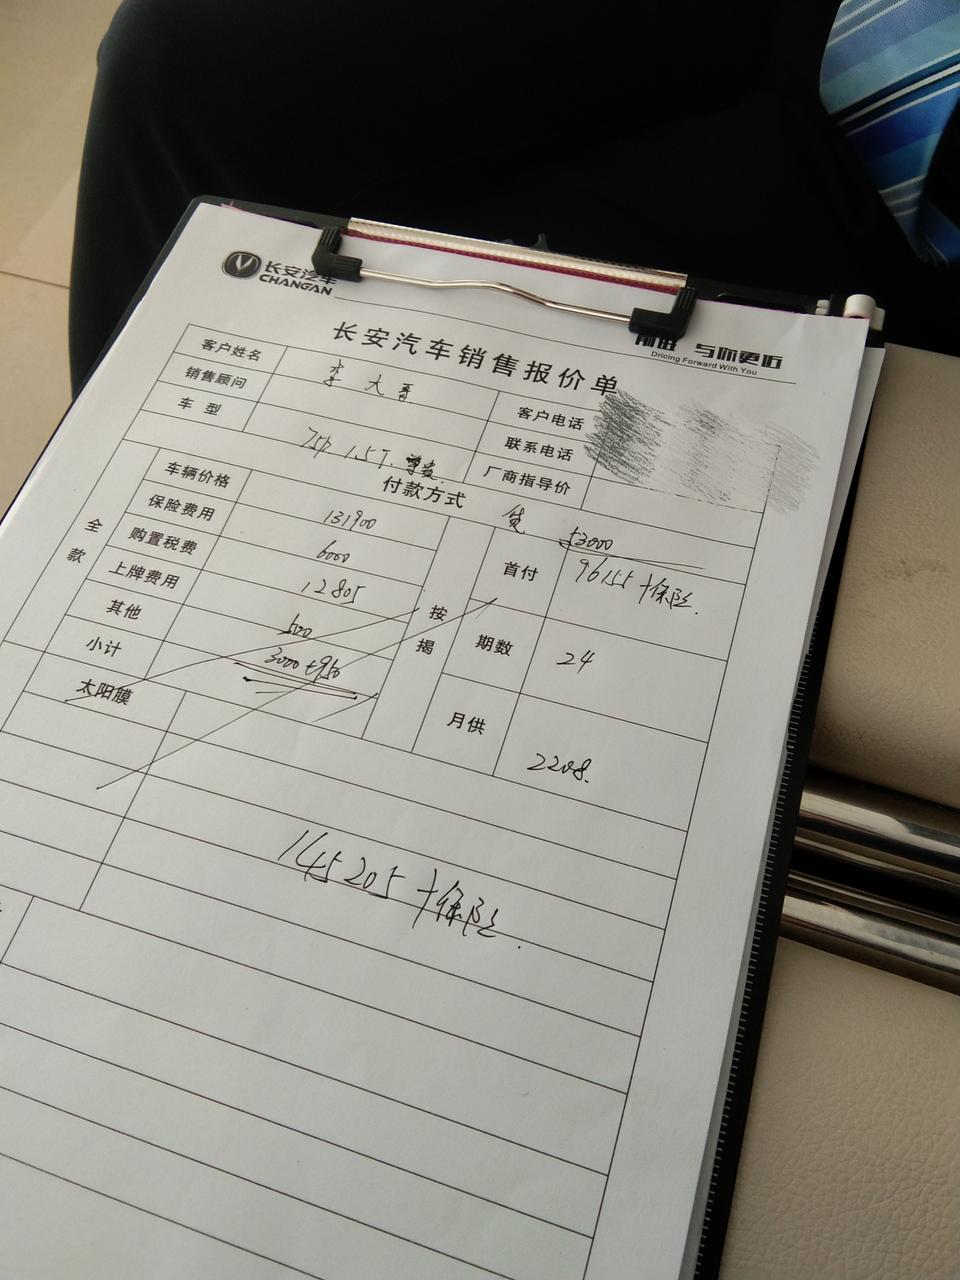 长安汽车
CHANGAN
与你更近
Dricing Forward With You
长安汽车销售报价单
客户姓名 李大哥 客户电话
销售顾问 联系电话
车型 1.5T 厂商指导价
付款方式
全款
车辆价格 131900
保险费用 6000
购置税费 12805
上牌费用 500
其他 3000+950
小计
太阳膜
按揭
贷 53000
首付 96155+保险
期数 24
月供 2208.
145205+保险.